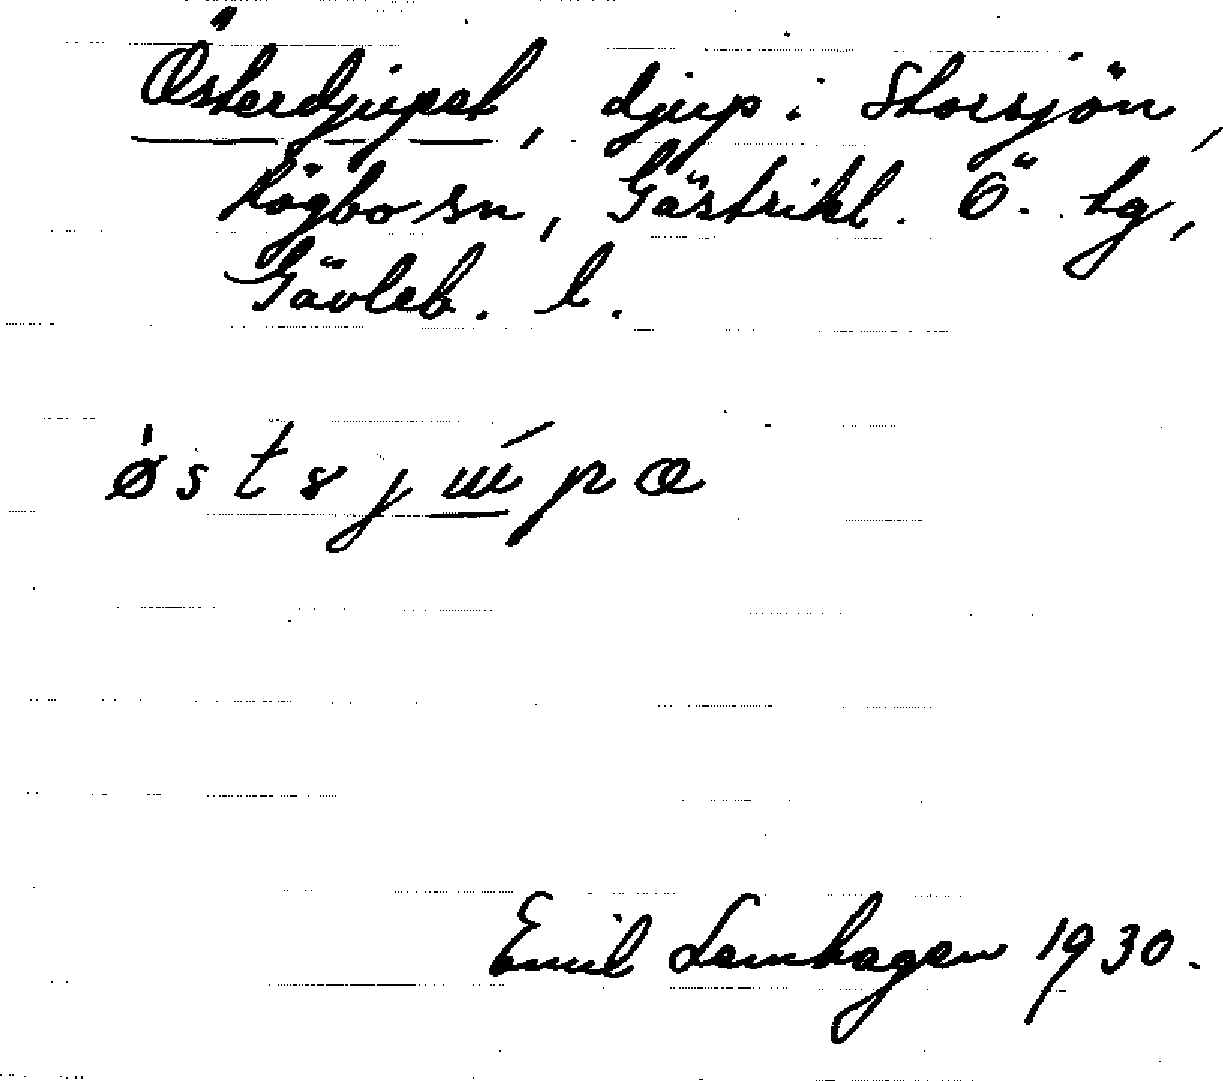 Österdjupet, djup i Storsjön,
Högbo sn, Gästrikl. Ö. tg,
Gävleb. l.
Emil Lemhagen 1930.